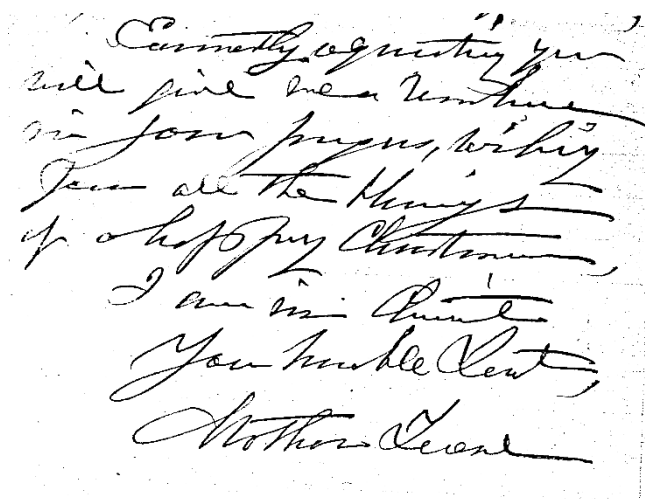 Earnestly requesting you
will give me a remembrance
in your prayers, wishing
You all the things
of a happy Christmas,
I am in Christ
Your humble Servt,
Mother